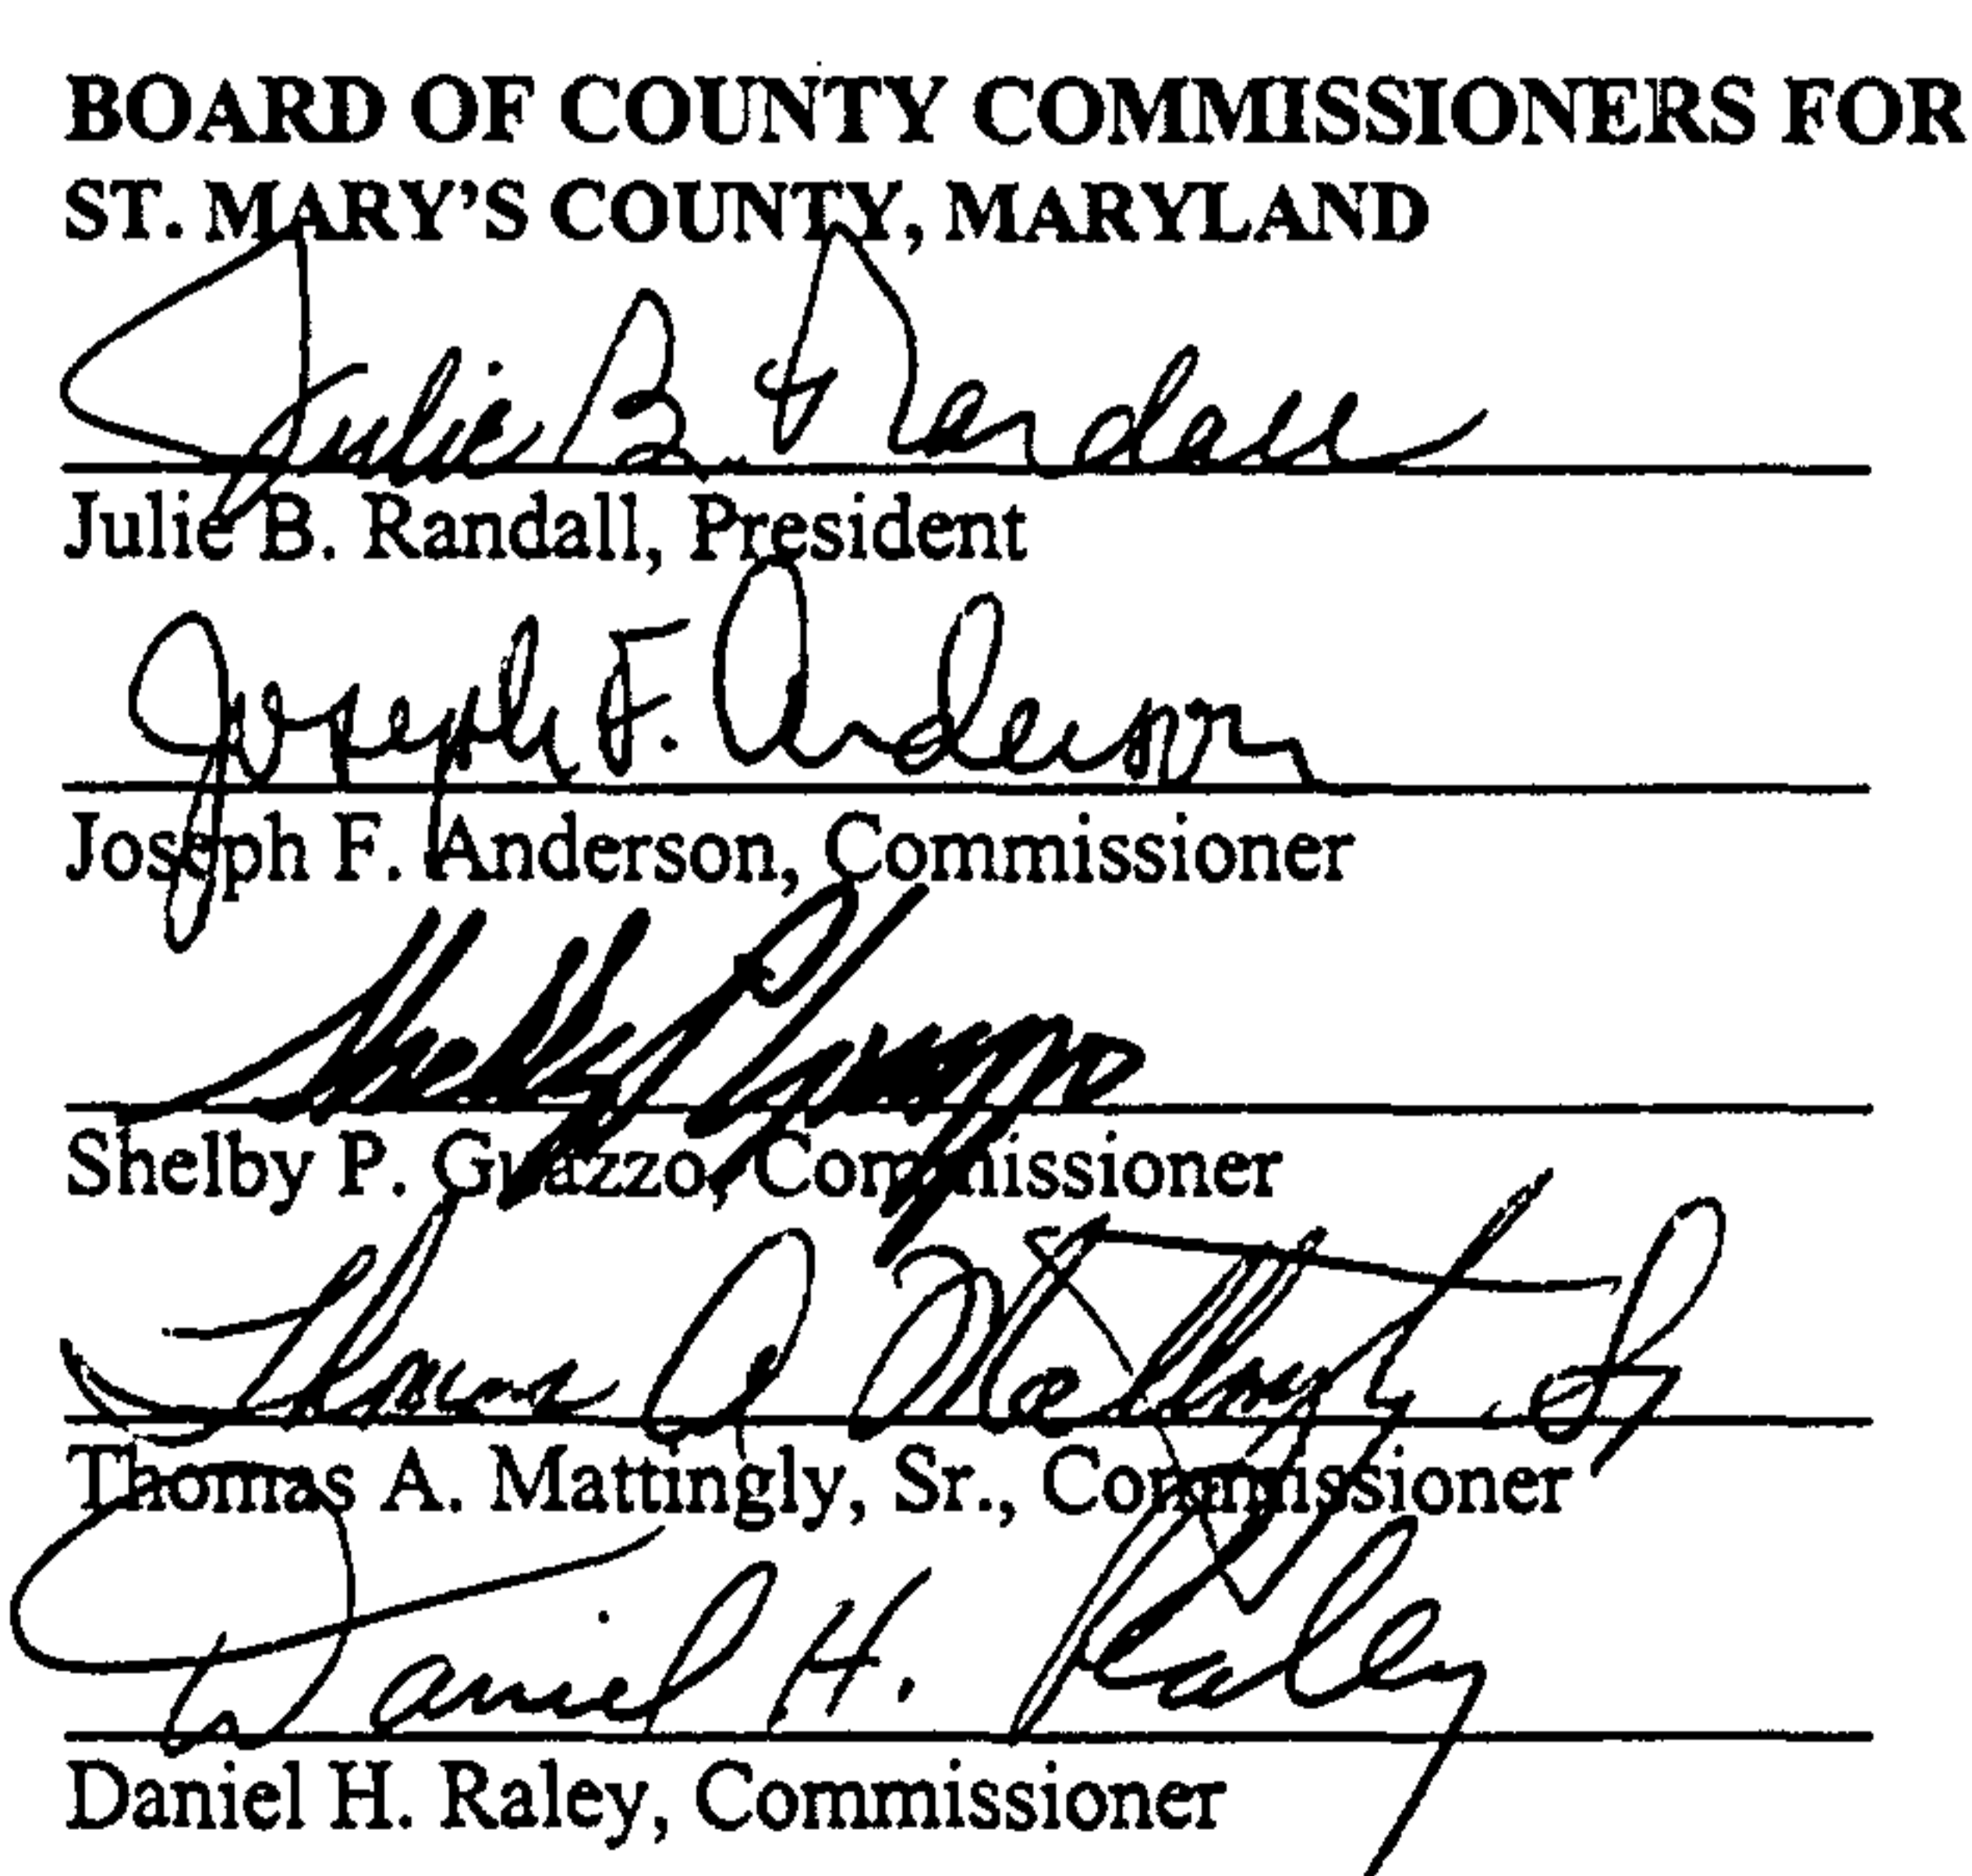 BOARD OF COUNTY COMMISSIONERS FOR
ST. MARY'S COUNTY, MARYLAND
Julie B. Randall
Julie B. Randall, President
Joseph F. Anderson
Joseph F. Anderson, Commissioner
Shelby P. Guazzo
Shelby P. Guazzo, Commissioner
Thomas A Mattingly, Sr
Thomas A. Mattingly, Sr., Commissioner
Daniel H. Raley
Daniel H. Raley, Commissioner